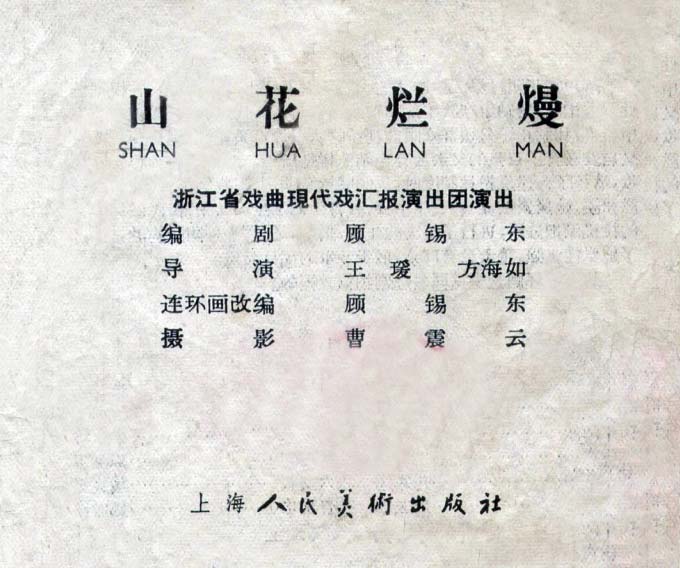 山花烂熳
SHAN HUA LAN MAN
浙江省戏曲現代戏汇报演出团演出
编剧 顾锡东
导演 王瑷 方海如
连环画改编 顾锡东
摄影 曹震云
上海人民美術出版社